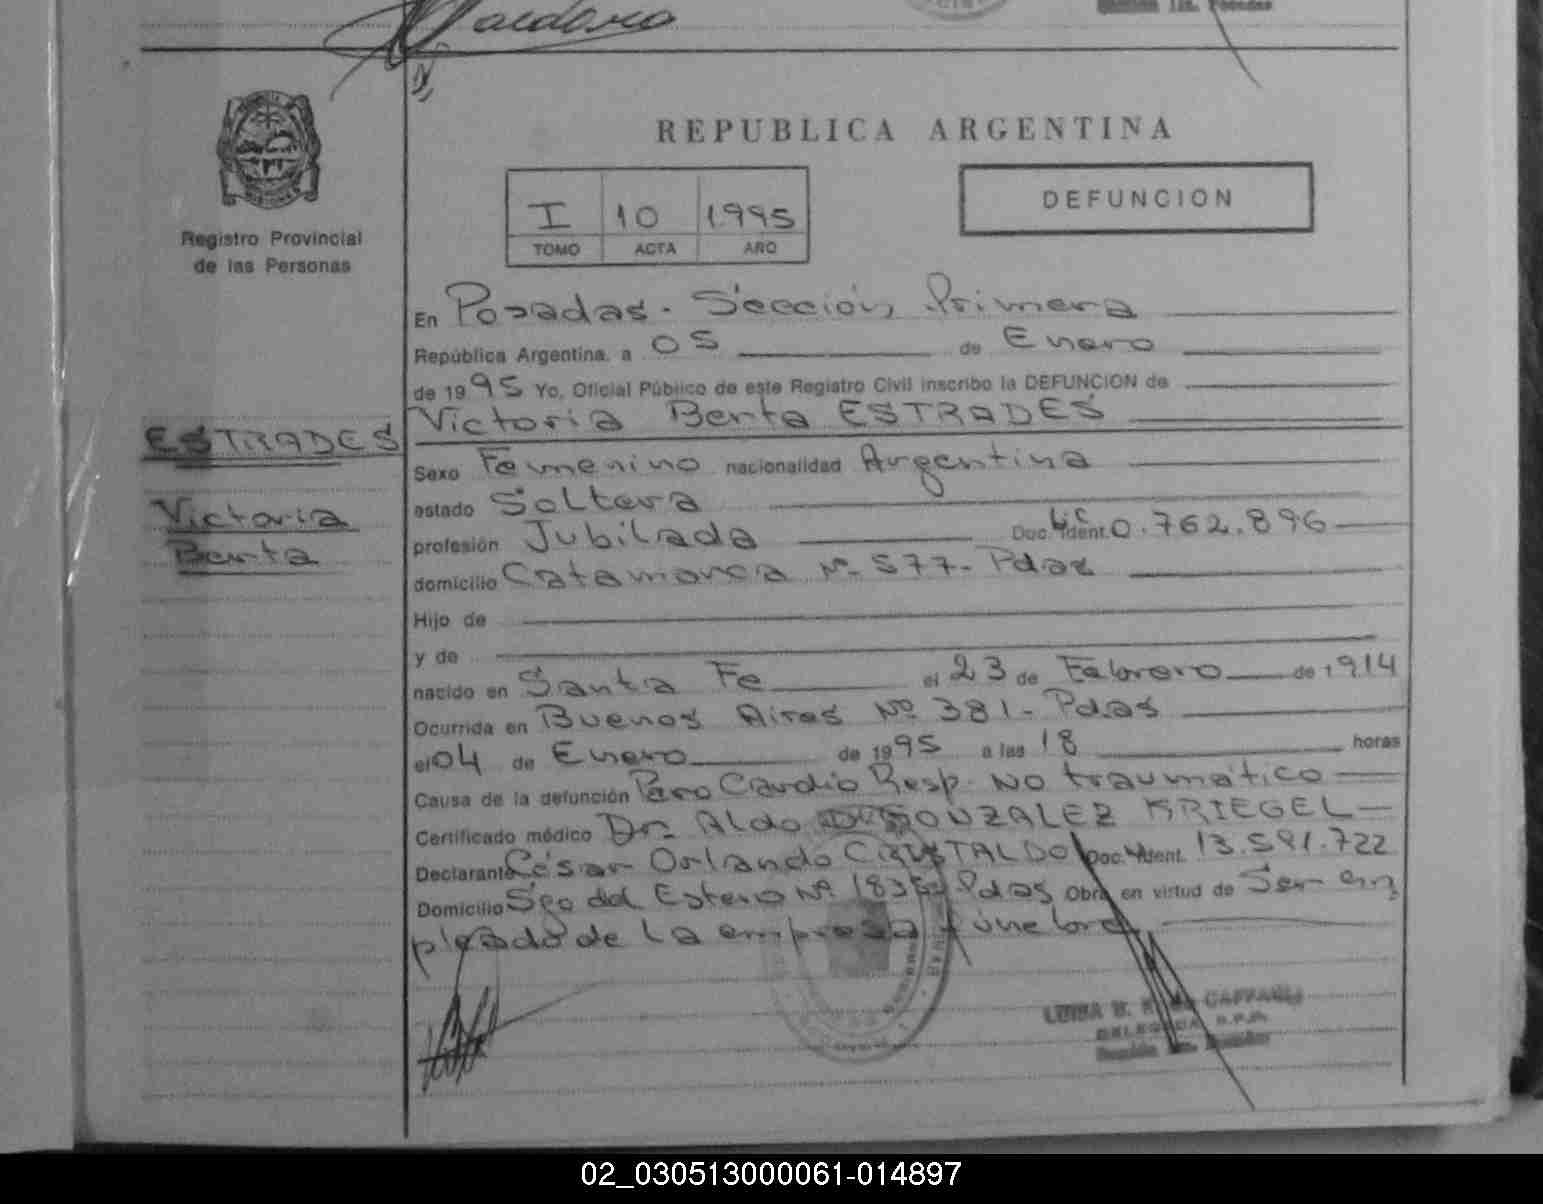 REPUBLICA ARGENTINA
DEFUNCION
I 10 1.995
TOMO ACTA AÑO
Registro Provincial
de las Personas
En Posadas. Sección Primera
República Argentina, a 05 de Enero
de 1995 Yo, Oficial Público de este Registro Civil inscribo la DEFUNCION de
Victoria Berta ESTRADES
ESTRADES
Victoria
Berta
Sexo Femenino nacionalidad Argentina
estado Soltera
profesión Jubilada Doc. Ident. L.C. 0.762.896
domicilio Catamarca Nº 577- Pdas
Hijo de
y de
nacido en Santa Fe el 23 de Febrero de 1914
Ocurrida en Buenos Aires Nº 381- Pdas
el 04 de Enero de 1995 a las 18 horas
Causa de la defunción Paro Cardio Resp. No traumático
Certificado médico Dr. Aldo GONZALEZ KRIEGEL
Declarante César Orlando Doc. Ident. 13.591.722
Domicilio Sgo del Estero Nº Pdas Obra en virtud de Ser em
pleado de la empresa fúnebre
02_030513000061-014897